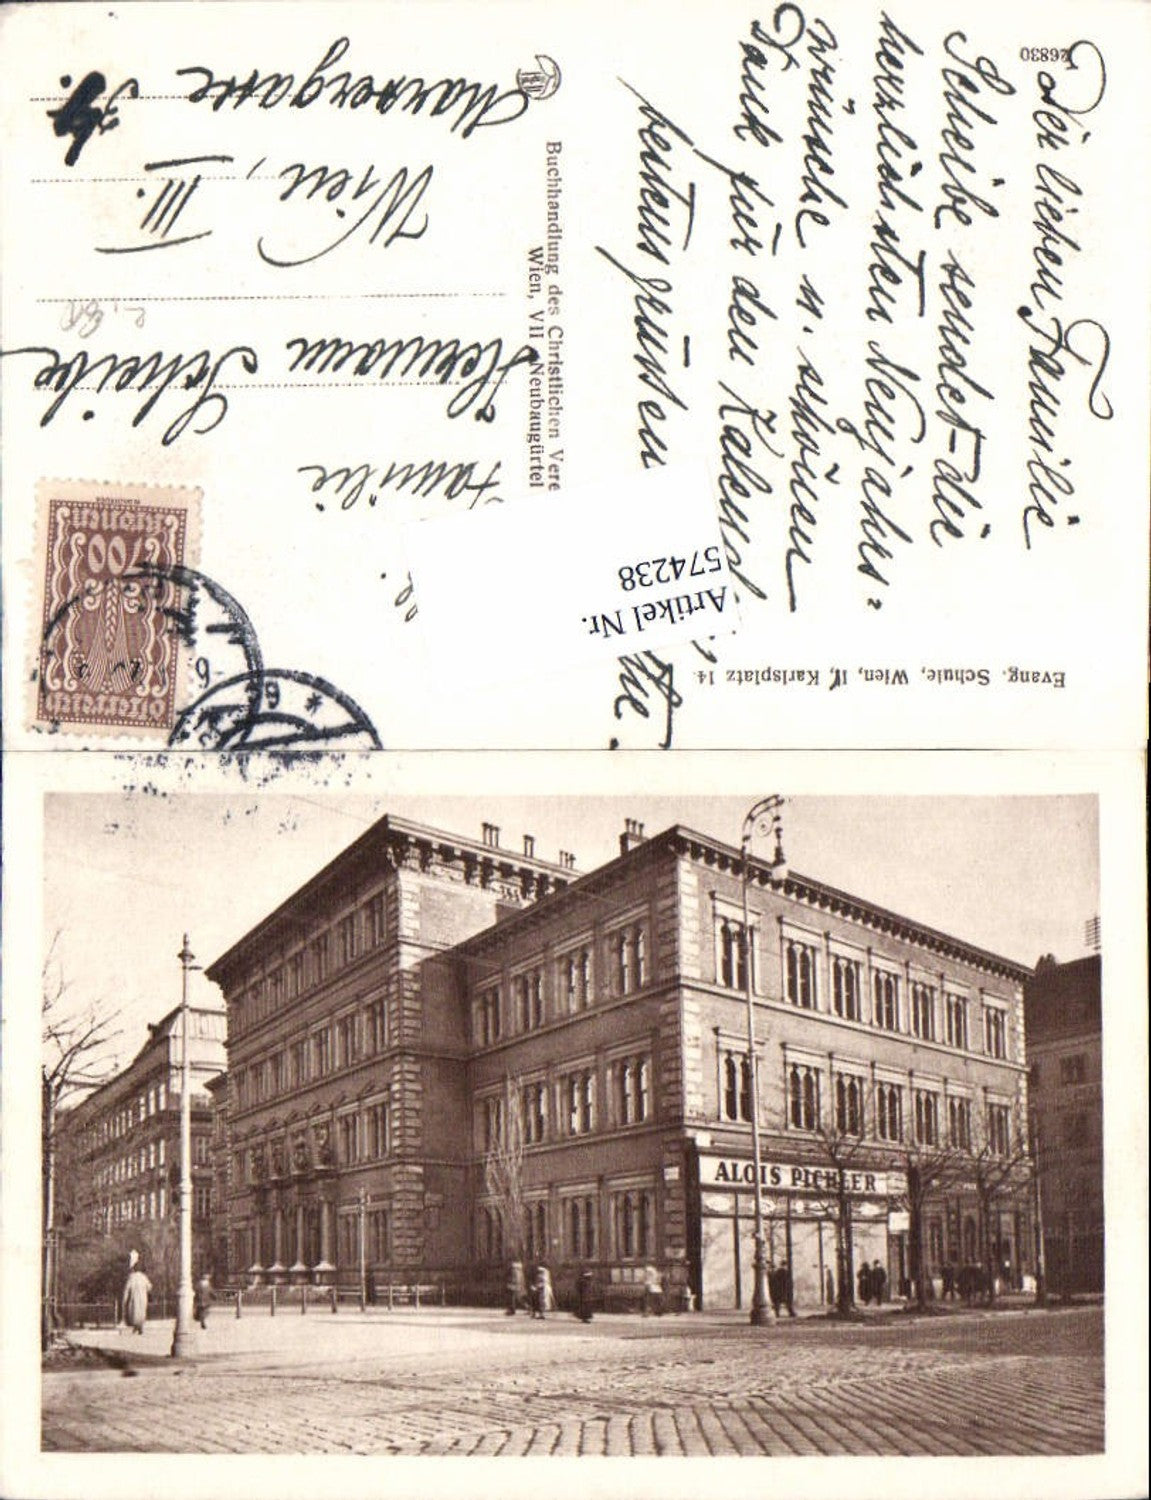 26830
Der lieben Familie
Scheibe sendet die
herzlichsten Neujahrs=
wünsche u. schönen
Dank für den Kalend
bestens grüssen
Evang. Schule, Wien, IV, Karlsplatz 14.
Artikel Nr.
574238
Buchhandlung des Christlichen Vere
Wien, VII Neubaugürtel
Familie
Hermann Scheibe
Wien, III.
Marxergasse
700
Kronen
Österreich
6
ALOIS PICHLER